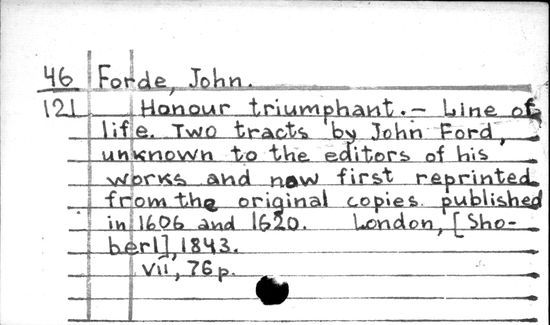 46 Forde, John.
121 Honour triumphant. — Line of
life. Two tracts by John Ford,
unknown to the editors of his
works and now first reprinted
from the original copies published
in 1606 and 1620. London, [Sho-
berl], 1843.
vii, 76 p.